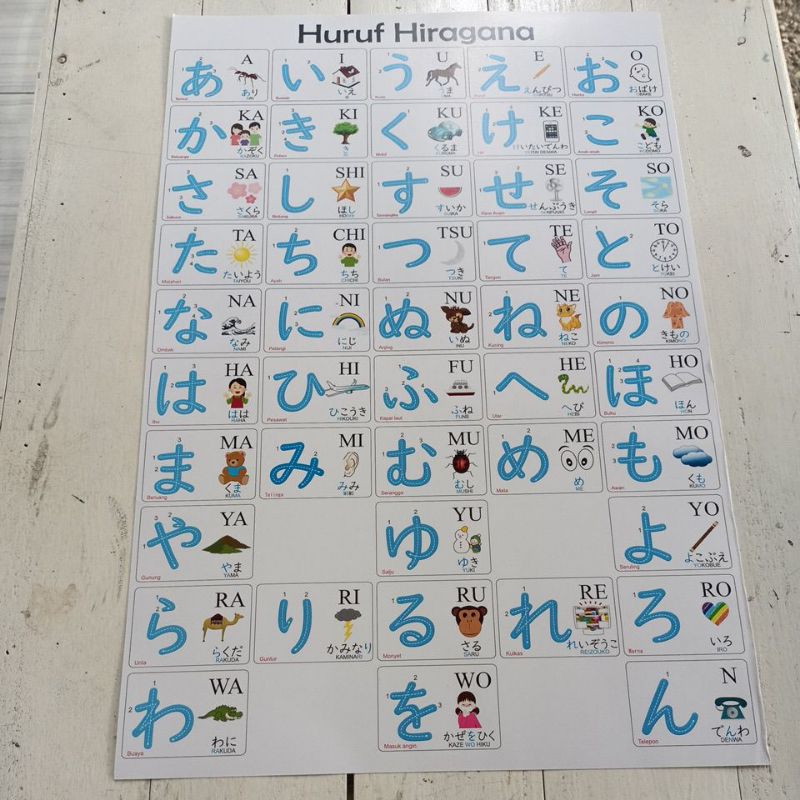 Huruf Hiragana
A
あ
あり
Semut
I
い
いえ
Rumah
U
う
うま
Kuda
E
え
えんぴつ
O
お
おばけ
OBAKE
Hantu
KA
か
かぞく
KAZOKU
Keluarga
KI
き
き
Pohon
KU
く
くるま
KURUMA
Mobil
KE
け
けいたいでんわ
KO
こ
こども
KODOMO
Anak-anak
SA
さ
さくら
SAKURA
Sakura
SHI
し
ほし
HOSHI
Bintang
SU
す
すいか
SUIKA
Semangka
SE
せ
せんぷうき
SENPUUKI
Kipas Angin
SO
そ
そら
SORA
Langit
TA
た
たいよう
TAIYOU
Matahari
CHI
ち
ちち
CHICHI
Ayah
TSU
つ
つき
TSUKI
Bulan
TE
て
て
TE
Tangan
TO
と
とけい
TOKEI
Jam
NA
な
なみ
NAMI
Ombak
NI
に
にじ
NIJI
Pelangi
NU
ぬ
いぬ
INU
Anjing
NE
ね
ねこ
NEKO
Kucing
NO
の
きもの
KIMONO
Kimono
HA
は
はは
HAHA
Ibu
HI
ひ
ひこうき
HIKOUKI
Pesawat
FU
ふ
ふね
FUNE
Kapal laut
HE
へ
へび
HEBI
Ular
HO
ほ
ほん
HON
Buku
MA
ま
くま
KUMA
Beruang
MI
み
みみ
MIMI
Telinga
MU
む
むし
MUSHI
Serangga
ME
め
め
ME
Mata
MO
も
くも
KUMO
Awan
YA
や
やま
YAMA
Gunung
YU
ゆ
ゆき
YUKI
Salju
YO
よ
よこぶえ
YOKOBUE
Seruling
RA
ら
らくだ
RAKUDA
Unta
RI
り
かみなり
KAMINARI
Guntur
RU
る
さる
SARU
Monyet
RE
れ
れいぞうこ
REIZOUKO
Kulkas
RO
ろ
いろ
IRO
Warna
WA
わ
わに
RAKUDA
Buaya
WO
を
かぜをひく
KAZE WO HIKU
Masuk angin
N
ん
でんわ
DENWA
Telepon